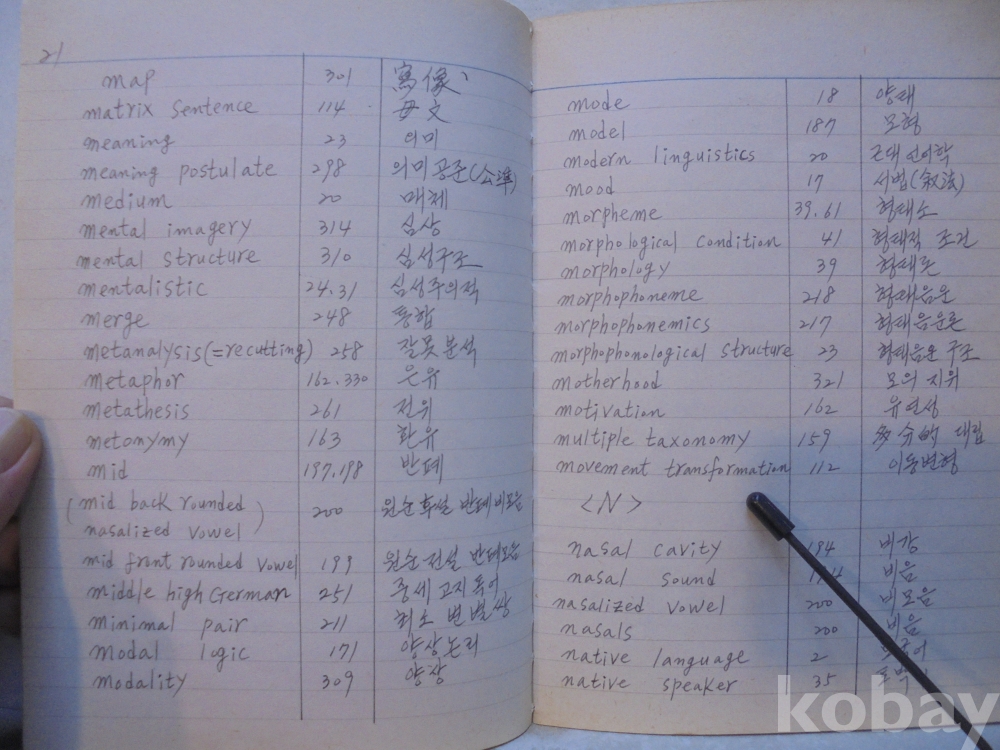 21
map 301 寫像
matrix sentence 114 母文
meaning 23 의미
meaning postulate 298 의미공준(公準)
medium 20 매체
mental imagery 314 심상
mental structure 310 심성구조
mentalistic 24.31 심성주의적
merge 248 통합
metanalysis(=recutting) 258 잘못 분석
metaphor 162.330 은유
metathesis 261 전위
metonymy 163 환유
mid 197.198 반폐
(mid back rounded
nasalized vowel) 200 원순후설 반폐비모음
mid front rounded vowel 199 원순전설 반폐모음
middle high German 251 중세 고지 독어
minimal pair 211 최소 변별쌍
modal logic 171 양상논리
modality 309 양상
mode 18 양태
model 187 모형
modern linguistics 20 근대 언어학
mood 17 서법(敍法)
morpheme 39.61 형태소
morphological condition 41 형태적 조건
morphology 39 형태론
morphophoneme 218 형태음운
morphophonemics 217 형태음운론
morphophonological structure 23 형태음운 구조
motherhood 321 모의 지위
motivation 162 유연성
multiple taxonomy 159 多分的 대립
movement transformation 112 이동변형
<N>
nasal cavity 194 비강
nasal sound 비음
nasalized vowel 200 비모음
nasals 200 비음
native language 2
native speaker 35
kobay